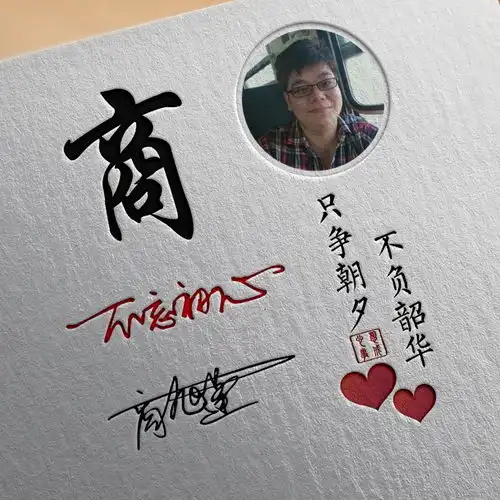 商
不忘初心
商旭莹
只争朝夕
不负韶华